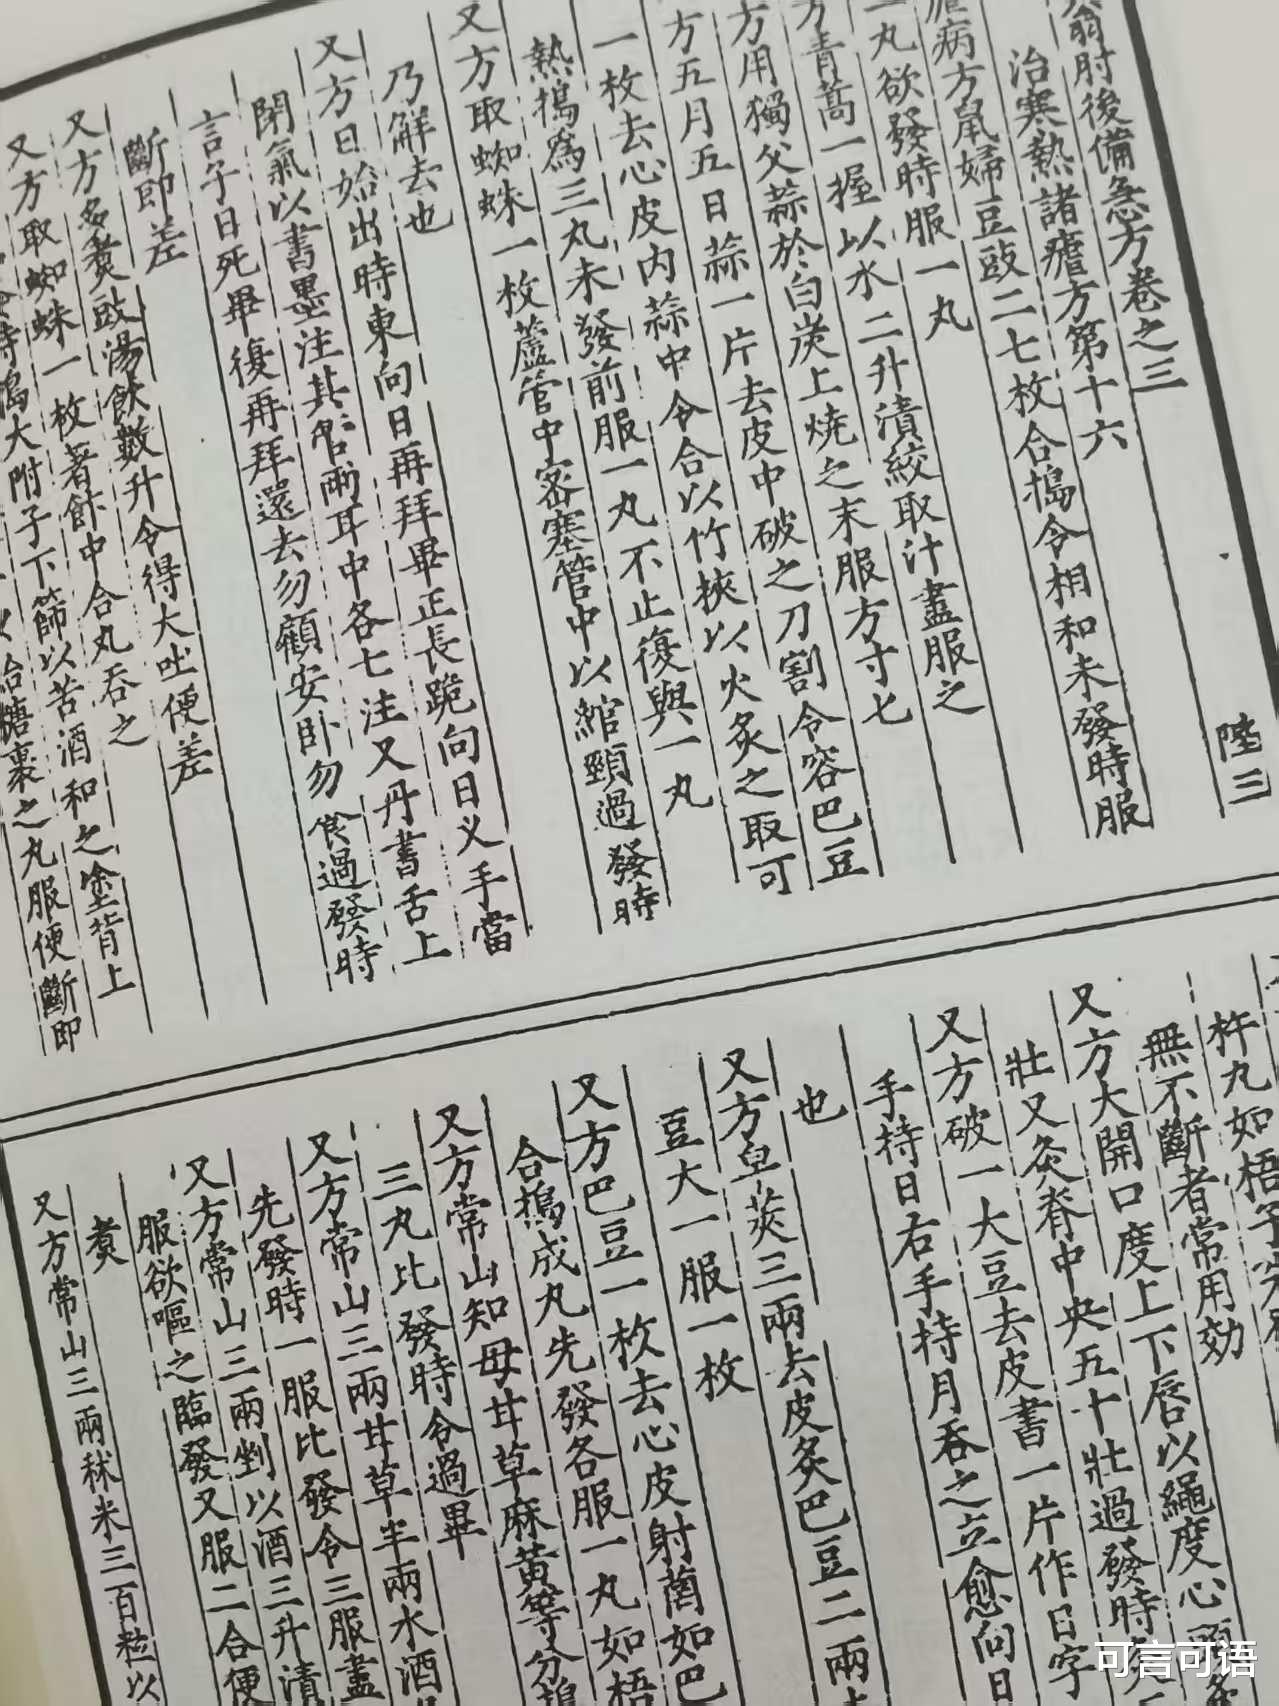 翁肘後備急方卷之三
陸三
治寒熱諸瘧方第十六
瘧病方鼠婦豆豉二七枚合搗令相和未發時服
丸欲發時服一丸
青蒿一握以水二升漬絞取汁盡服之
方用獨父蒜於白炭上燒之末服方寸匕
方五月五日蒜一片去皮中破之刀割令容巴豆
一枚去心皮內蒜中令合以竹挾以火炙之取可
熱搗為三丸未發前服一丸不止復與一丸
又方取蜘蛛一枚蘆管中密塞管中以綰頸過發時
乃解去也
又方日始出時東向日再拜畢正長跪向日义手當
閉氣以書墨注其兩耳中各七注又丹書舌上
言子日死畢復再拜還去勿顧安卧勿食過發時
斷即差
又方多煑豉湯飲數升令得大吐便差
又方取蜘蛛一枚著飰中合丸吞之
又方搗大附子下篩以苦酒和之塗背上
飴糖裹之丸服便斷即
杵丸如梧子
無不斷者常用効
又方大開口度上下唇以繩度心頭
壯又灸脊中央五十壯過發時
又方破一大豆去皮書一片作日字
手持日右手持月吞之立愈向日
也
又方皁莢三兩去皮炙巴豆二兩
豆大一服一枚
又方巴豆一枚去心皮射菵如巴
合搗成丸先發各服一丸如梧
又方常山知母甘草麻黃等分搗
三丸比發時令過畢
又方常山三兩甘草半兩水酒
先發時一服比發令三服盡
又方常山三兩剉以酒三升漬
服欲嘔之臨發又服二合便
煑
又方常山三兩秫米三百粒以
可言可语